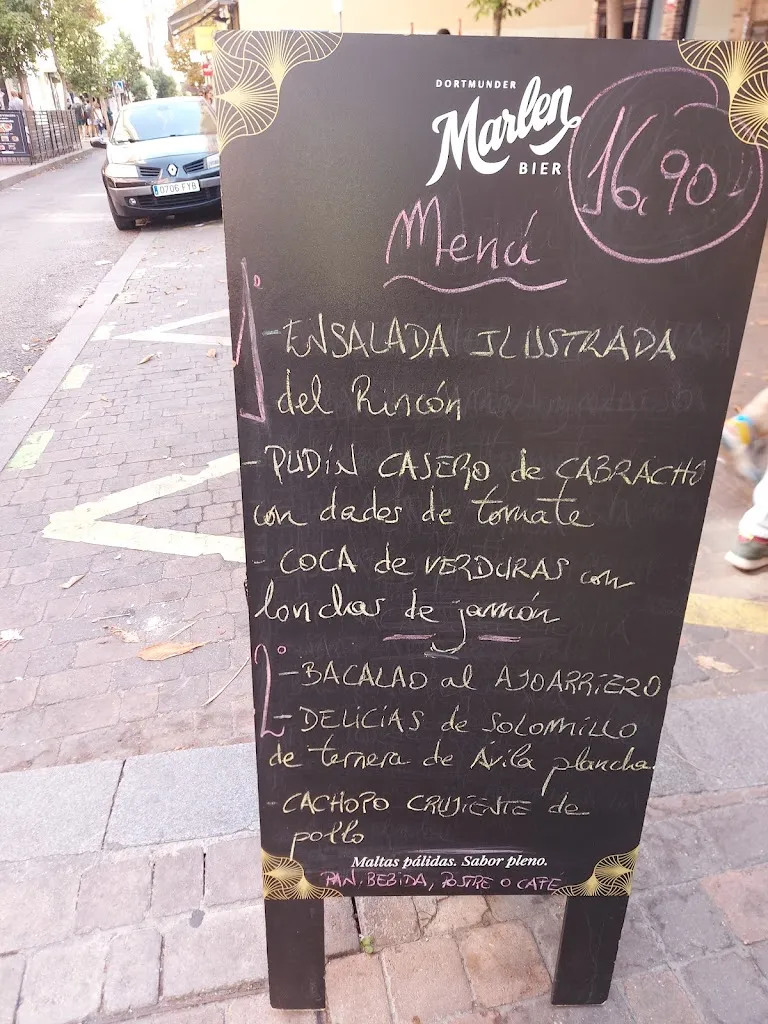 DORTMUNDER
Marlen
BIER
16,90
Menú
1º
-ENSALADA ILUSTRADA
del Rincón
-PUDIN CASERO de CABRACHO
con dados de tomate
- COCA de VERDURAS con
lonchas de jamón
2º
-BACALAO al AJOARRIERO
-DELICIAS de SOLOMILLO
de ternera de Ávila plancha.
- CACHOPO CRUJIENTE de
pollo
Maltas pálidas. Sabor pleno.
PAN, BEBIDA, POSTRE O CAFÉ
0706 FYB